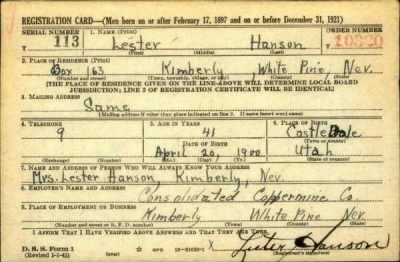 REGISTRATION CARD—(Men born on or after February 17, 1897 and on or before December 31, 1921)
SERIAL NUMBER 1. NAME (Print) ORDER NUMBER
113 Lester Hanson
(First) (Middle) (Last)
2. PLACE OF RESIDENCE (Print)
Box 163 Kimberly White Pine, Nev.
(Number and street) (Town, township, village, or city) (County) (State)
[THE PLACE OF RESIDENCE GIVEN ON THE LINE ABOVE WILL DETERMINE LOCAL BOARD
JURISDICTION; LINE 2 OF REGISTRATION CERTIFICATE WILL BE IDENTICAL]
3. MAILING ADDRESS
Same
[Mailing address if other than place indicated on line 2. If same insert word same]
4. TELEPHONE 5. AGE IN YEARS 6. PLACE OF BIRTH
9 41 Castle Dale
DATE OF BIRTH (Town or county)
April 20, 1900 Utah
(Exchange) (Number) (Mo.) (Day) (Yr.) (State or country)
7. NAME AND ADDRESS OF PERSON WHO WILL ALWAYS KNOW YOUR ADDRESS
Mrs. Lester Hanson, Kimberly, Nev.
8. EMPLOYER'S NAME AND ADDRESS
Consolidated Coppermine Co.
9. PLACE OF EMPLOYMENT OR BUSINESS
Kimberly White Pine Nev.
(Number and street or R. F. D. number) (Town) (County) (State)
I AFFIRM THAT I HAVE VERIFIED ABOVE ANSWERS AND THAT THEY ARE TRUE.
D. S. S. Form 1
(Revised 1-1-42) Lester Hanson
(Registrant's signature)